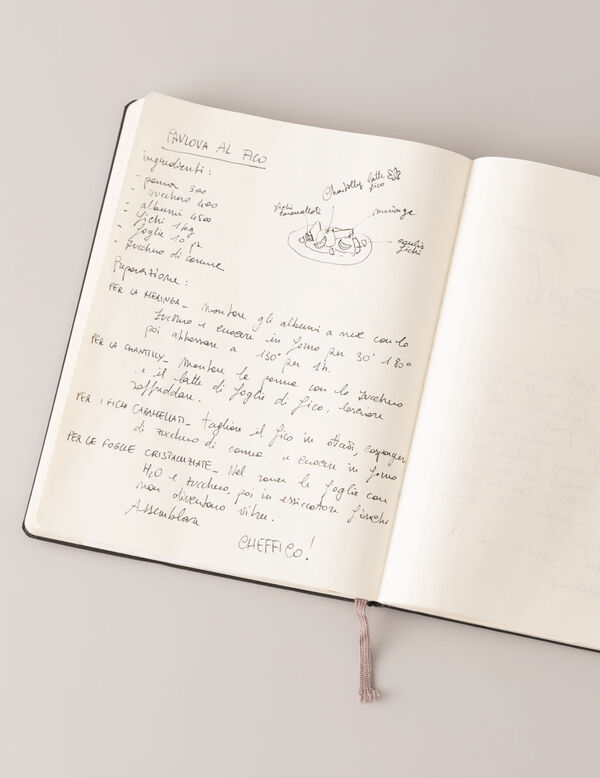 PAVLOVA AL FICO
ingredienti:
- panna 300
- zucchero 400
- albumi 4500
- fichi 1 kg
- foglie 10 pz.
- zucchero di canna
Chantilly latte fico
fichi caramellati
meringe
coulis fichi
Preparazione:
PER LA MERINGA_ montare gli albumi a neve con lo
zucchero e cuocere in forno per 30' 180°
poi abbassare a 130° per 1h.
PER LA CHANTILLY_ Montare la panna con lo zucchero
e il latte di foglie di fico, lasciare
raffreddare.
PER I FICHI CARAMELLATI_ tagliare il fico in ottavi, cospargere
di zucchero di canna e cuocere in forno
PER LE FOGLIE CRISTALLIZZATE_ Nel roner le foglie con
H2O e zucchero, poi in essiccatore finché
non diventano vitree.
Assemblare
CHEFFICO!